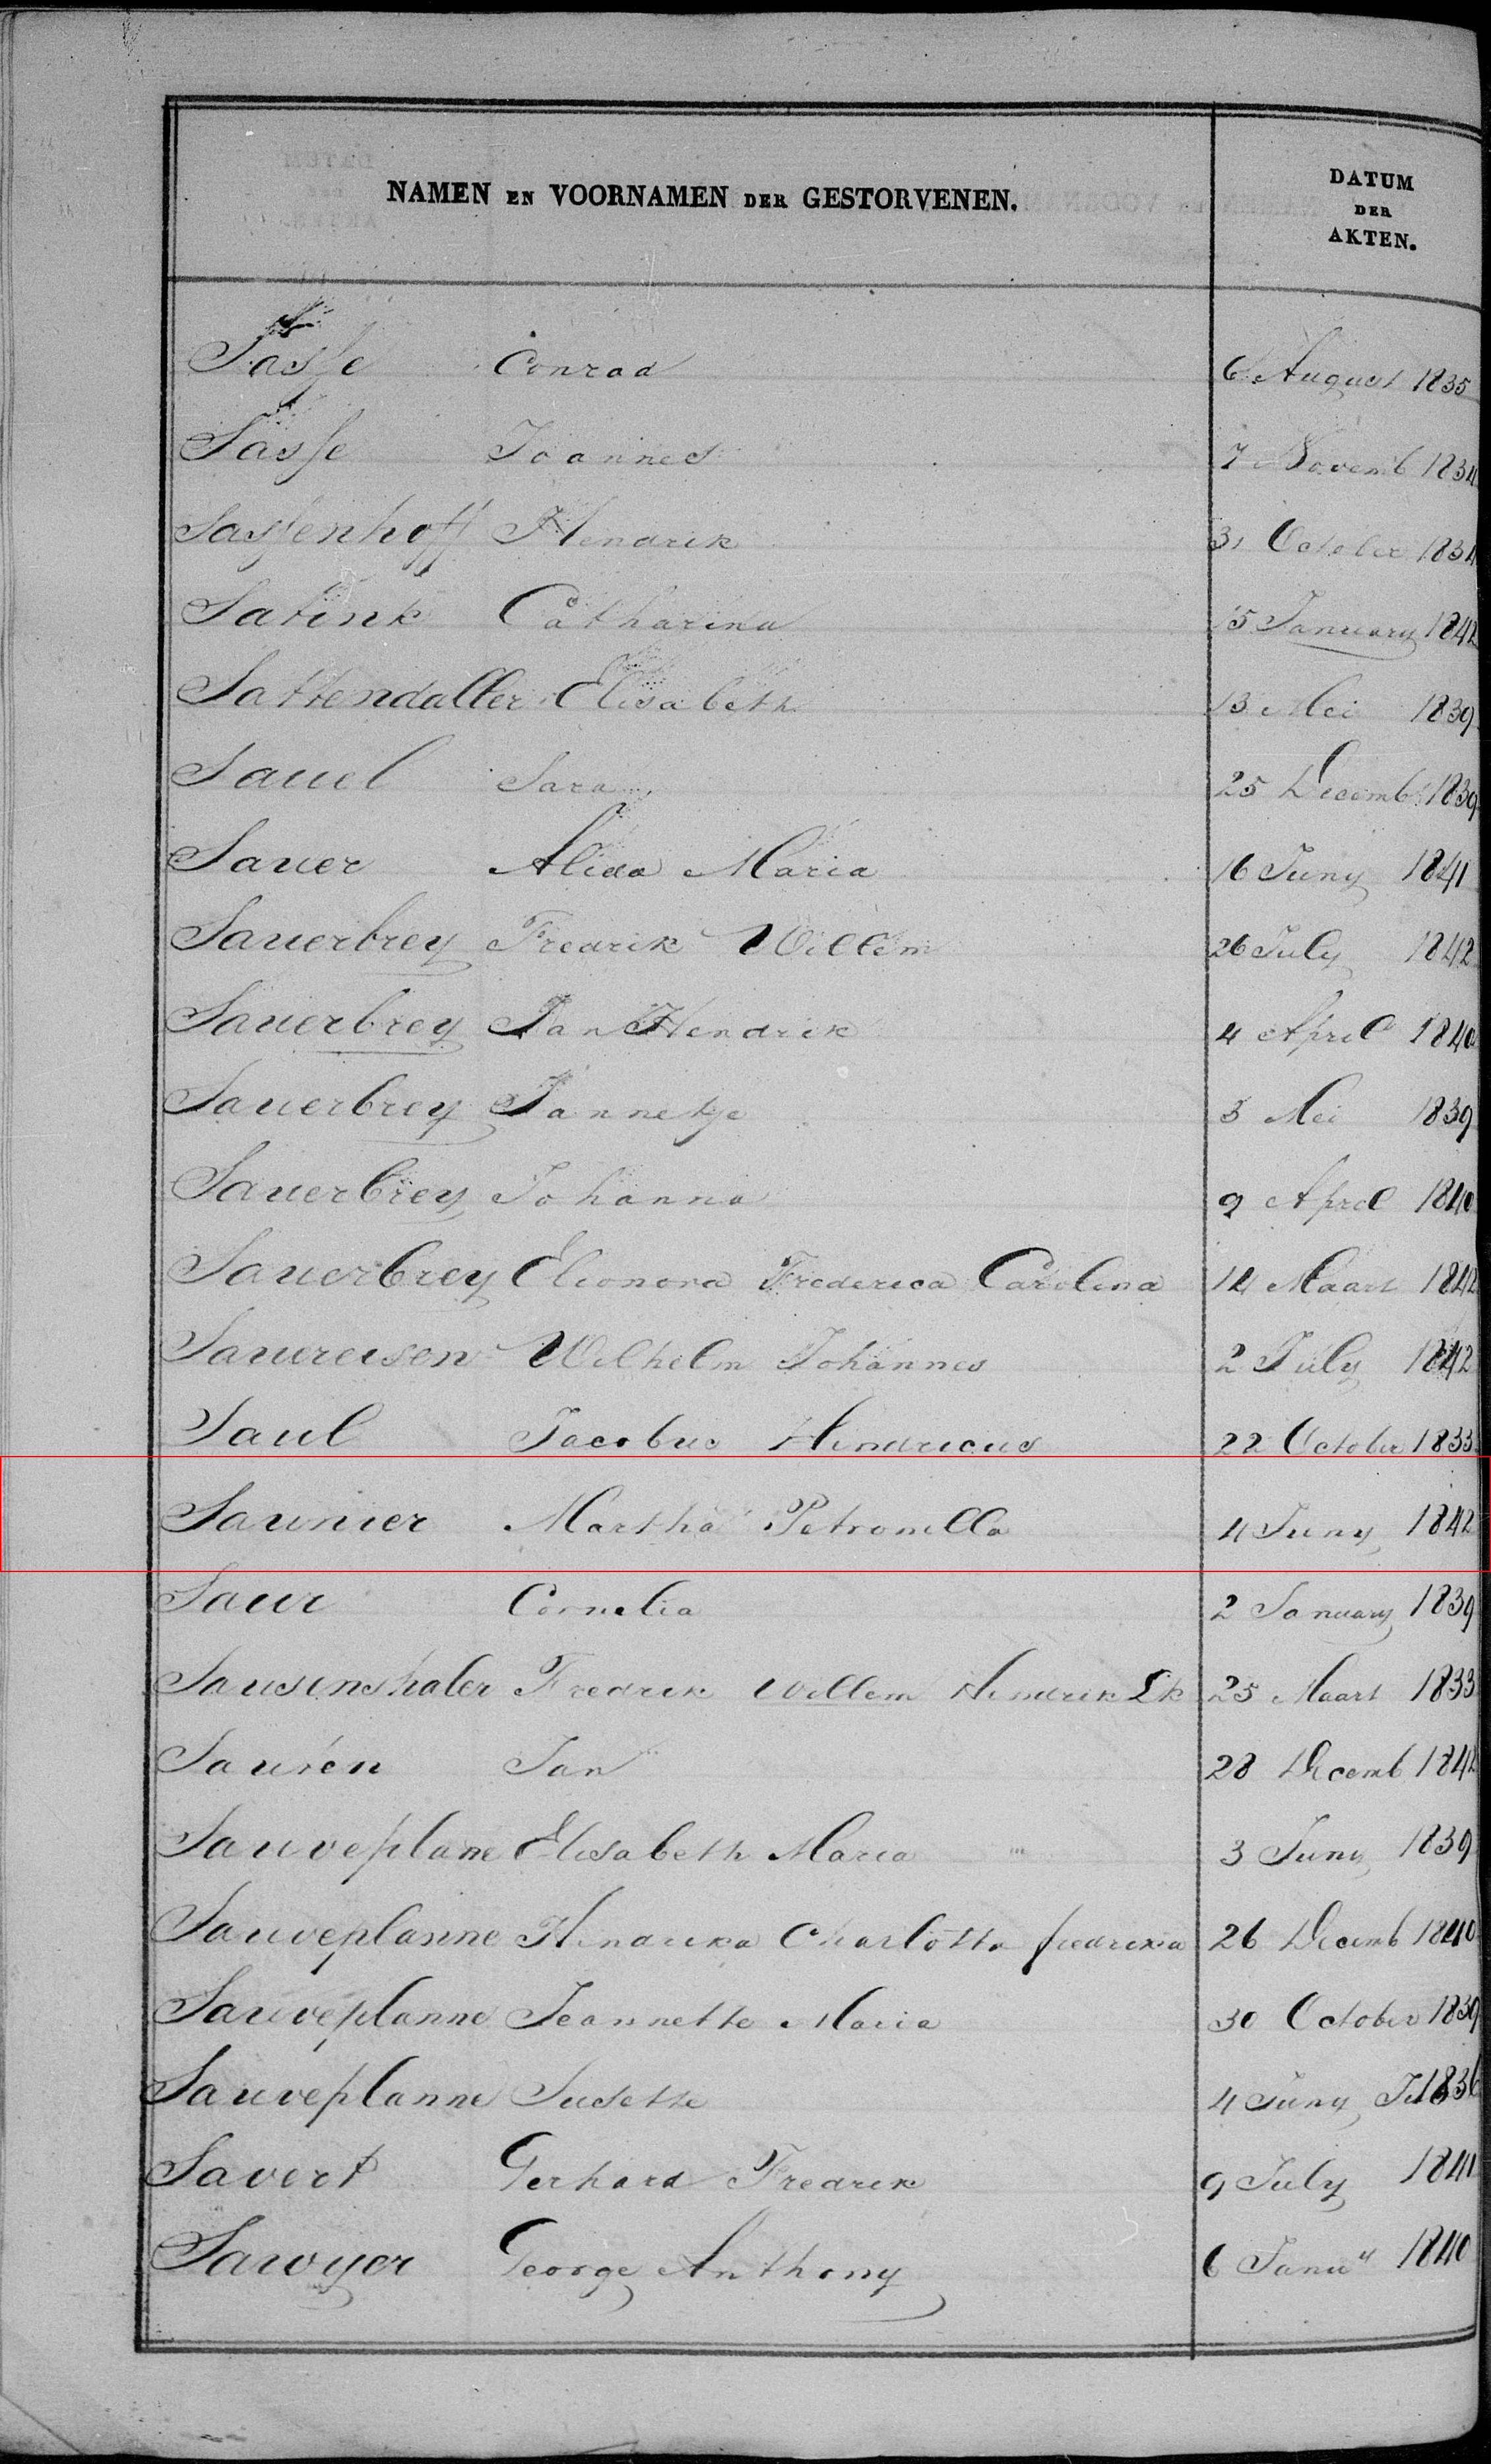 NAMEN EN VOORNAMEN DER GESTORVENEN.
DATUM
DER
AKTEN.
Sasse Conrad 6 August 1835
Sasse Joannes 7 Novemb 1834
Sassenhoff Hendrik 31 October 1834
Satink Catharina 15 January 1842
Elisabeth 13 Mei 1839
Sauel Sara 25 Decemb 1839
Sauer Alida Maria 16 Juny 1841
Sauerbrey Fredrik Willem 26 July 1842
Sauerbrey Jan Hendrik 4 April 1840
Sauerbrey Jannetje 3 Mei 1839
Sauerbrey Johanna 9 April 1840
Sauerbrey Elionora Frederica Carolina 14 Maart 1842
Wilhelm Johannes 2 July 1842
Saul Jacobus Hendricus 22 October 1833
Saunier Martha Petronilla 4 Juny 1842
Saur Cornelia 2 January 1839
Fredrik Willem Hendrik Lk 25 Maart 1833
Jan 28 Decemb 1842
Sauveplane Elisabeth Maria 3 Juny 1839
Sauveplanne Hendrika Charlotta fredrika 26 Decemb 1840
Sauveplanne Jeannette Maria 30 October 1839
Sauveplanne Susette 4 Juny 1836
Savert Gerhard Fredrik 9 July 1841
Sawyer George Anthony 6 Janu 1840